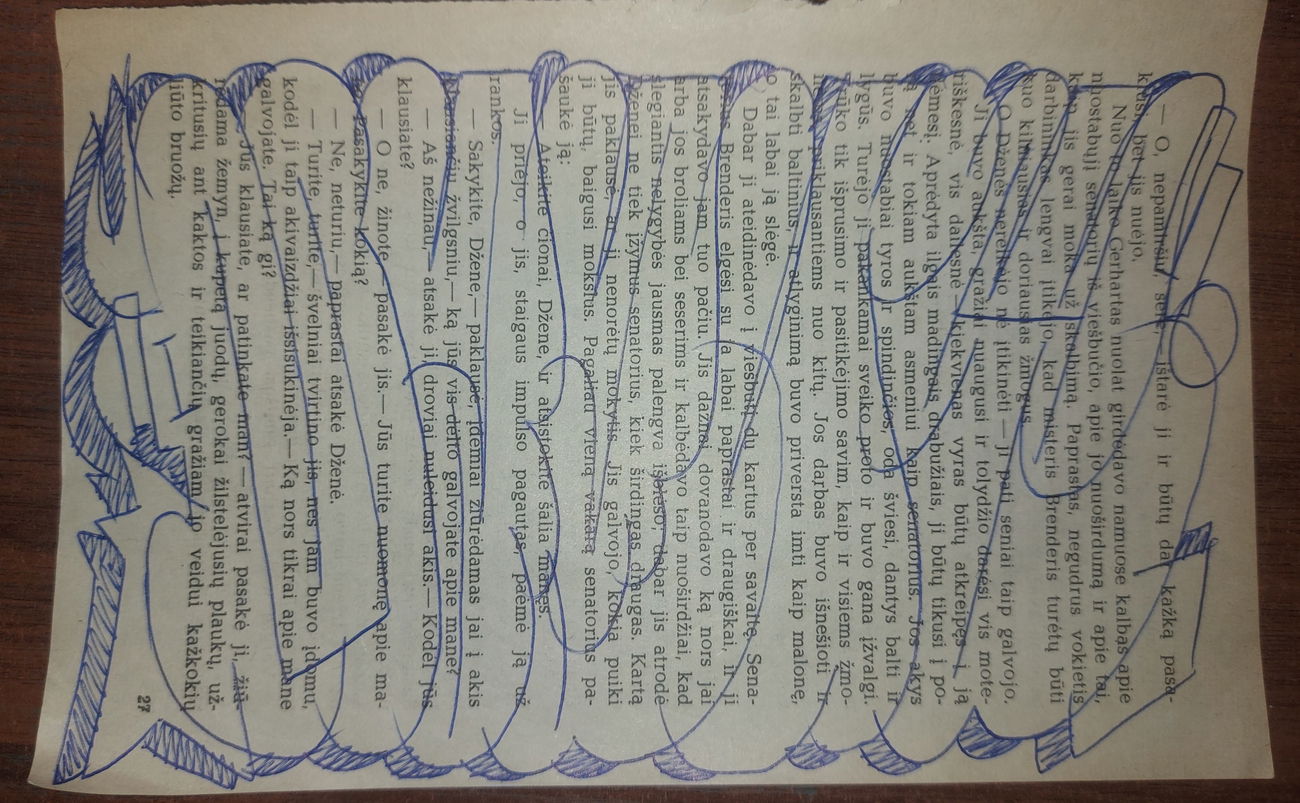 — O, nepamiršiu, sere,— ištarė ji ir būtų dar kažką pasa-
kiusi, bet jis nuėjo.
Nuo to laiko Gerhartas nuolat girdėdavo namuose kalbas apie
nuostabųjį senatorių iš viešbučio, apie jo nuoširdumą ir apie tai,
kaip jis gerai moka už skalbimą. Paprastas, negudrus vokietis
darbininkas lengvai įtikėjo, kad misteris Brenderis turėtų būti
kuo kilniausias ir doriausias žmogus.
O Dženės nereikėjo nė įtikinėti — ji pati seniai taip galvojo.
Ji buvo aukšta, gražiai nuaugusi ir tolydžio darėsi vis mote-
riškesnė, vis dailesnė — kiekvienas vyras būtų atkreipęs į ją
dėmesį. Aprėdyta ilgais madingais drabužiais, ji būtų tikusi į po-
rą net ir tokiam aukštam asmeniui kaip senatorius. Jos akys
buvo nuostabiai tyros ir spindinčios, oda šviesi, dantys balti ir
lygūs. Turėjo ji pakankamai sveiko proto ir buvo gana įžvalgi.
Trūko tik išprusimo ir pasitikėjimo savim, kaip ir visiems žmo-
nėms, priklausantiems nuo kitų. Jos darbas buvo išnešioti ir
skalbti baltinius, ir atlyginimą buvo priversta imti kaip malonę,
o tai labai ją slėgė.
Dabar ji ateidinėdavo į viešbutį du kartus per savaitę. Sena-
torius Brenderis elgėsi su ja labai paprastai ir draugiškai, ir ji
atsakydavo jam tuo pačiu. Jis dažnai dovanodavo ką nors jai
arba jos broliams bei seserims ir kalbėdavo taip nuoširdžiai, kad
slegiantis nelygybės jausmas palengva išblėso, dabar jis atrodė
Dženei ne tiek įžymus senatorius, kiek širdingas draugas. Kartą
jis paklausė, ar ji nenorėtų mokytis. Jis galvojo, kokia puiki
ji būtų, baigusi mokslus. Pagaliau vieną vakarą senatorius pa-
šaukė ją:
— Ateikite čionai, Džene, ir atsistokite šalia manęs.
Ji priėjo, o jis, staigaus impulso pagautas, paėmė ją už
rankos.
— Sakykite, Džene,— paklausė, įdėmiai žiūrėdamas jai į akis
klausiančiu žvilgsniu,— ką jūs vis dėlto galvojate apie mane?
— Aš nežinau,— atsakė ji, droviai nuleidusi akis.— Kodėl jūs
klausiate?
— O ne, žinote,— pasakė jis.— Jūs turite nuomonę apie ma-
ne. Pasakykite kokią?
— Ne, neturiu,— paprastai atsakė Dženė.
— Turite, turite,— švelniai tvirtino jis, nes jam buvo įdomu,
kodėl ji taip akivaizdžiai išsisukinėja.— Ką nors tikrai apie mane
galvojate. Tai ką gi?
— Jūs klausiate, ar patinkate man? — atvirai pasakė ji, žiū-
rėdama žemyn, į kupetą juodų, gerokai žilstelėjusių plaukų, už-
kritusių ant kaktos ir teikiančių gražiam jo veidui kažkokių
liūto bruožų.
27